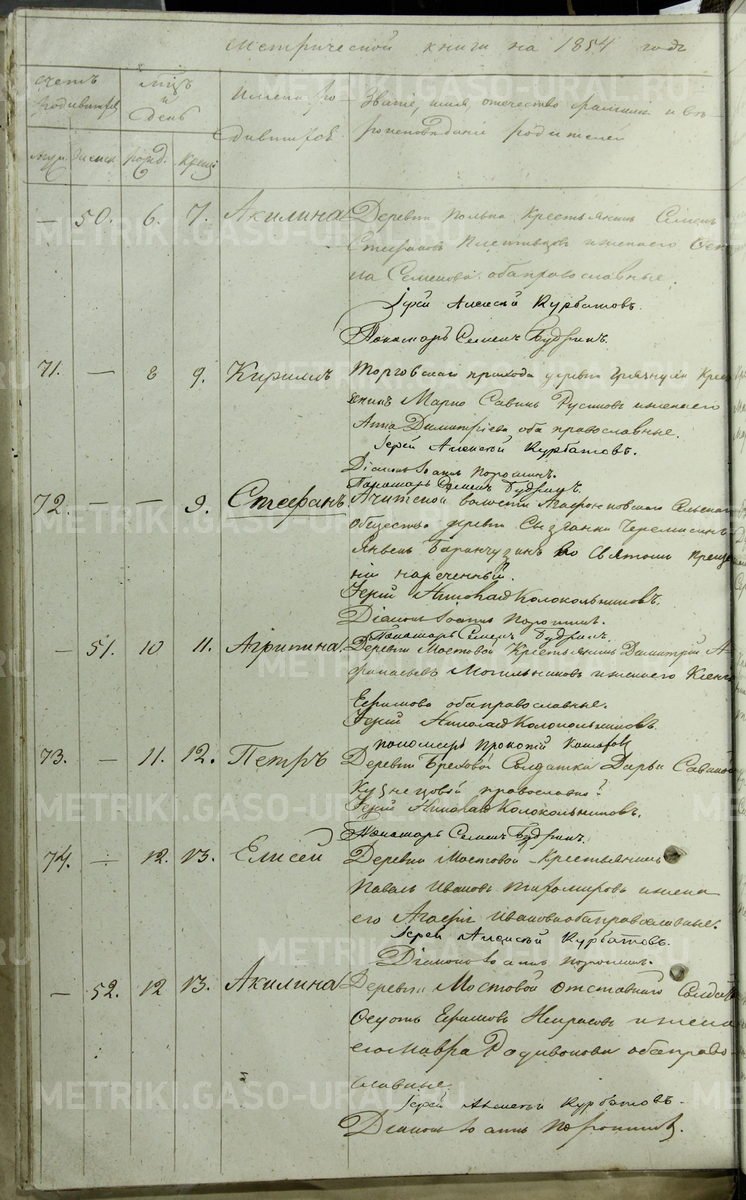 Метрической книги на 1854 годъ
счетъ родившихся
мцъ и день
Имена родившихся.
Званіе, имя, отечество фамилія и вѣроисповѣданіе родителей
муж. женск. рожд. крещ.
— 50. 6. 7. Акилина Деревни Крестьянинъ Семенъ
Стефановъ и жена его
Семенова оба православные.
Іерей Алексѣй Курбатовъ.
Пономарь Семенъ Будринъ.
71. — 8 9. Кириллъ Торговскаго прихода деревни
Марко Савинъ Русиновъ и жена его
Анна Димитріева оба православные.
Іерей Алексѣй Курбатовъ.
Діаконъ Іоаннъ Порошинъ.
Пономарь Семенъ Будринъ.
72. — — 9. Стефанъ. Ачитской волости Сельскаго
общества деревни Сызганки Черемисинъ
во Святомъ Креще
ніи нареченный.
Іерей Николай Колокольниковъ.
Діаконъ Іоаннъ Порошинъ.
Пономарь Семенъ Будринъ.
— 51. 10 11. Агрипина Деревни Мостовой Крестьянинъ Димитрій А
фанасьевъ Могильниковъ и жена его
Ефимова оба православные.
Іерей Николай Колокольниковъ.
пономарь Прокопій
73. — 11. 12. Петръ Деревни Солдатки Дарьи Савиной
Кузнецовой православн
Іерей Николай Колокольниковъ.
Пономарь Семенъ Будринъ.
74. — 12. 13. Елисей Деревни Мостовой Крестьянинъ
Павелъ Ивановъ и жена
его Агафья Иванова оба православные.
Іерей Алексѣй Курбатовъ.
Діаконъ Іоаннъ Порошинъ.
— 52. 12 13. Акилина Деревни Мостовой отставнаго Солдата
Ефимовъ Некрасовъ и жена
его Мавра Родивонова оба право
славные
Іерей Алексѣй Курбатовъ.
Діаконъ Іоаннъ Порошинъ.
METRIKI.GASO-URAL.RU